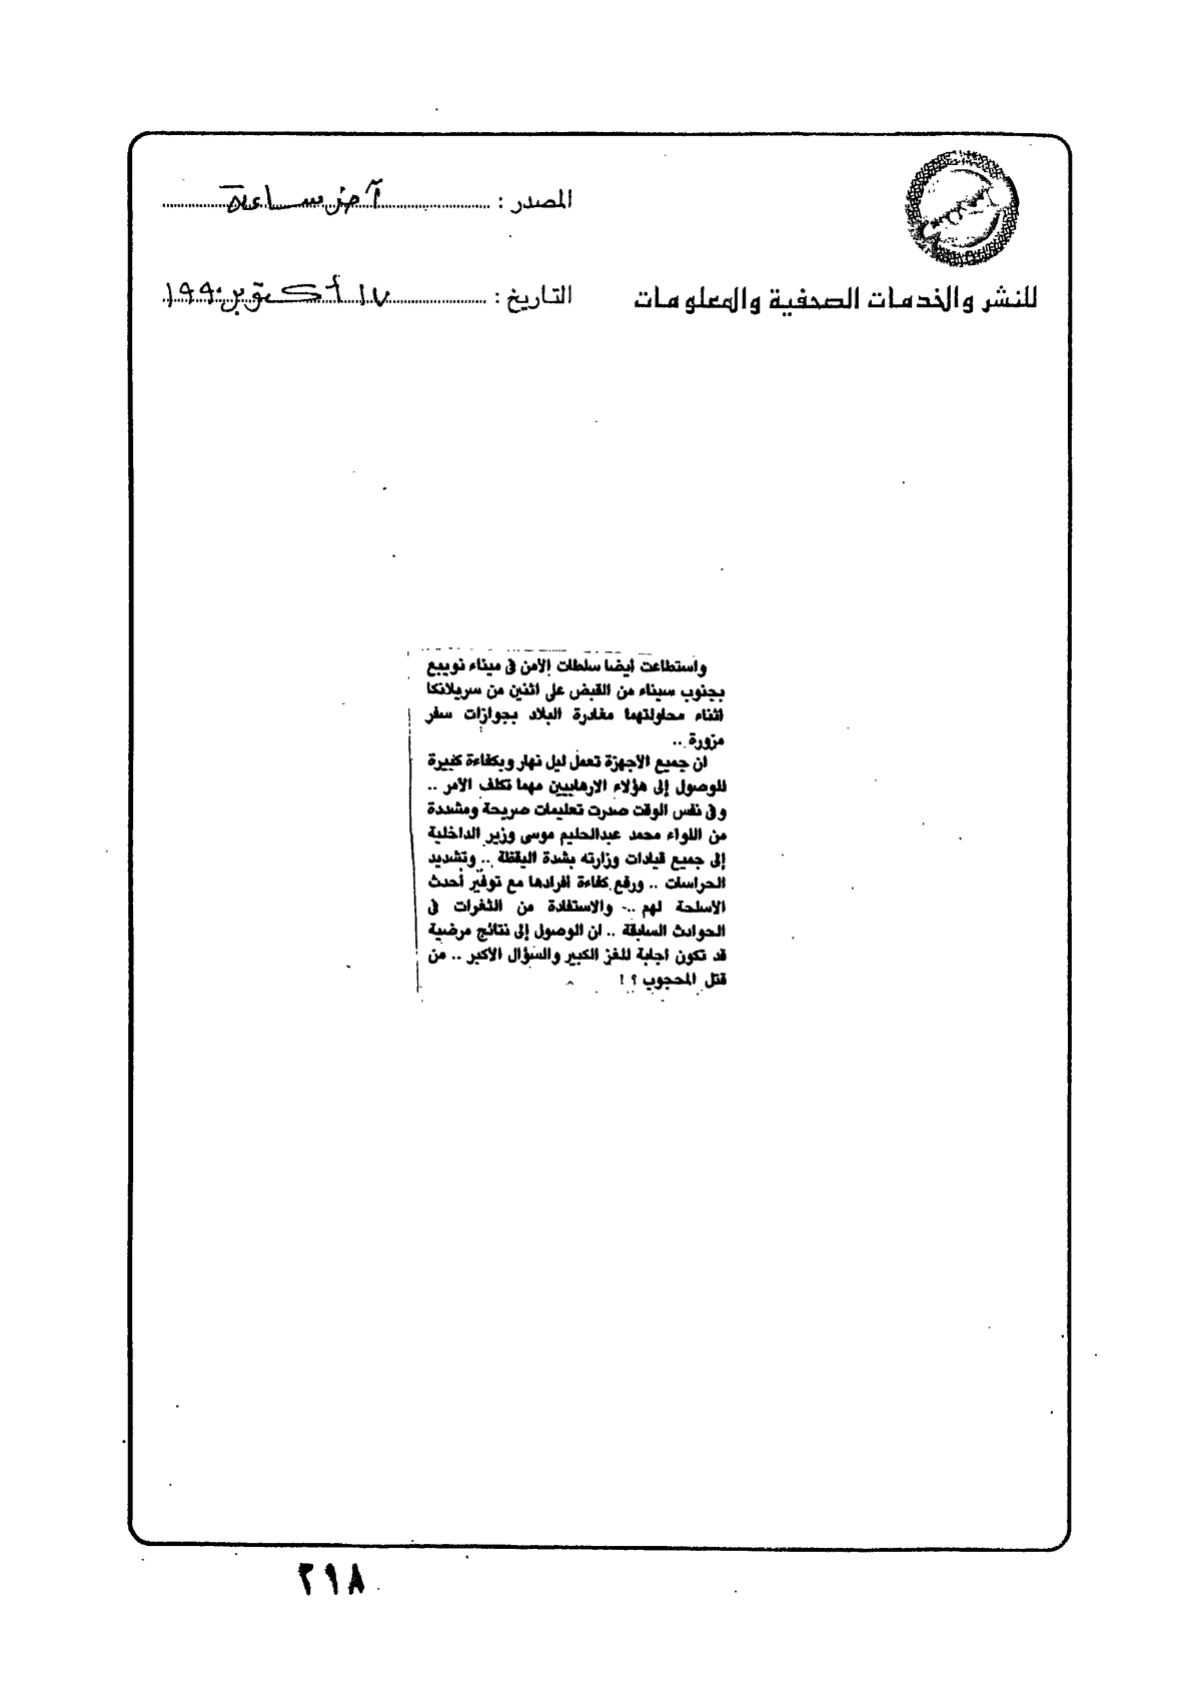 المصدر : آخر ساعة
للنشر والخدمات الصحفية والمعلومات
التاريخ : ١٧ أكتوبر ١٩٩٠
واستطاعت أيضا سلطات الأمن فى ميناء نويبع
بجنوب سيناء من القبض على اثنين من سريلانكا
اثناء محاولتهما مغادرة البلاد بجوازات سفر
مزورة ..
ان جميع الأجهزة تعمل ليل نهار وبكفاءة كبيرة
للوصول إلى هؤلاء الارهابيين مهما تكلف الأمر ..
وفى نفس الوقت صدرت تعليمات صريحة ومشددة
من اللواء محمد عبدالحليم موسى وزير الداخلية
إلى جميع قيادات وزارته بشدة اليقظة .. وتشديد
الحراسات .. ورفع كفاءة أفرادها مع توفير أحدث
الأسلحة لهم .. والاستفادة من الثغرات فى
الحوادث السابقة .. ان الوصول إلى نتائج مرضية
قد تكون اجابة للغز الكبير والسؤال الأكبر .. من
قتل المحجوب ؟ !
٣١٨